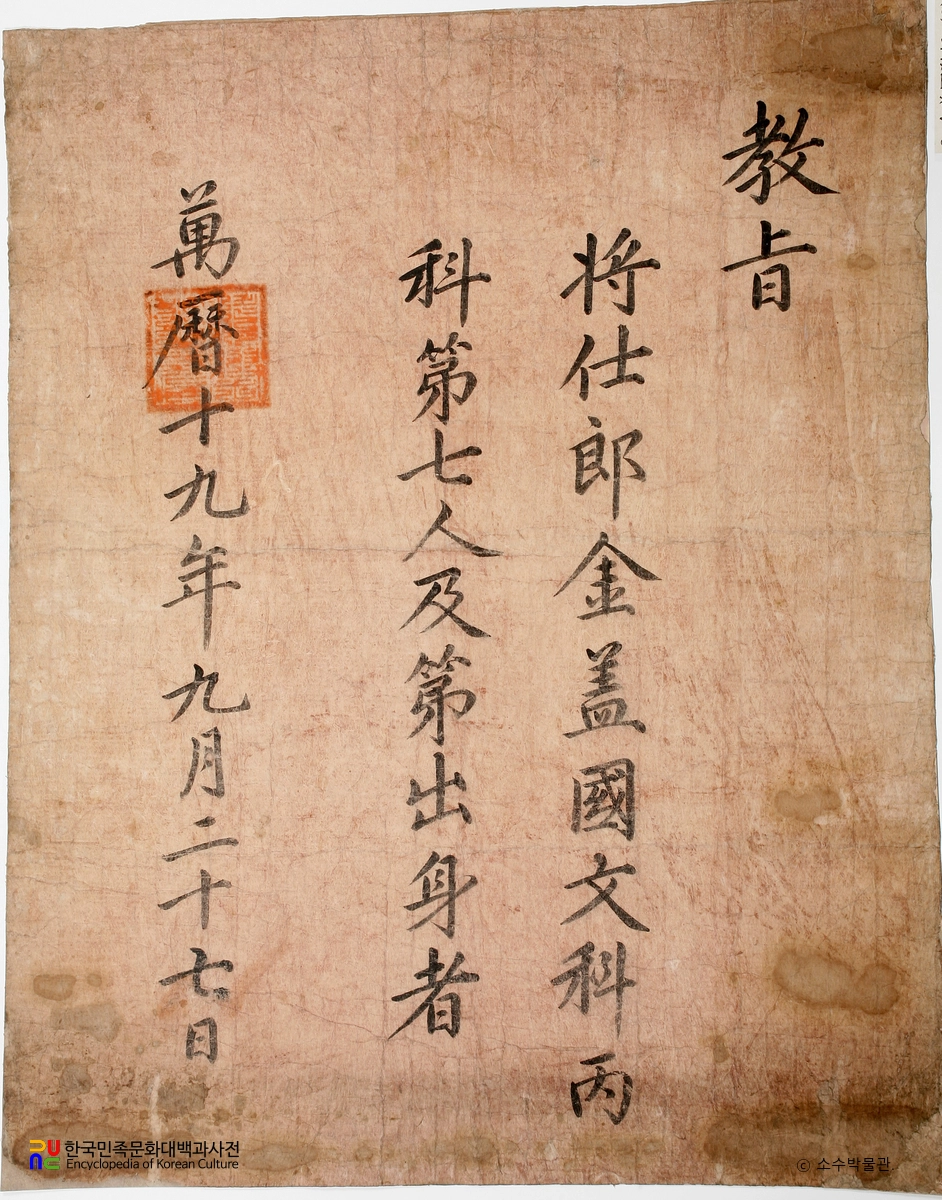 教旨
将仕郎金盖國文科丙
科第七人及第出身者
萬曆十九年九月二十七日
한국민족문화대백과사전
Encyclopedia of Korean Culture
ⓒ 소수박물관